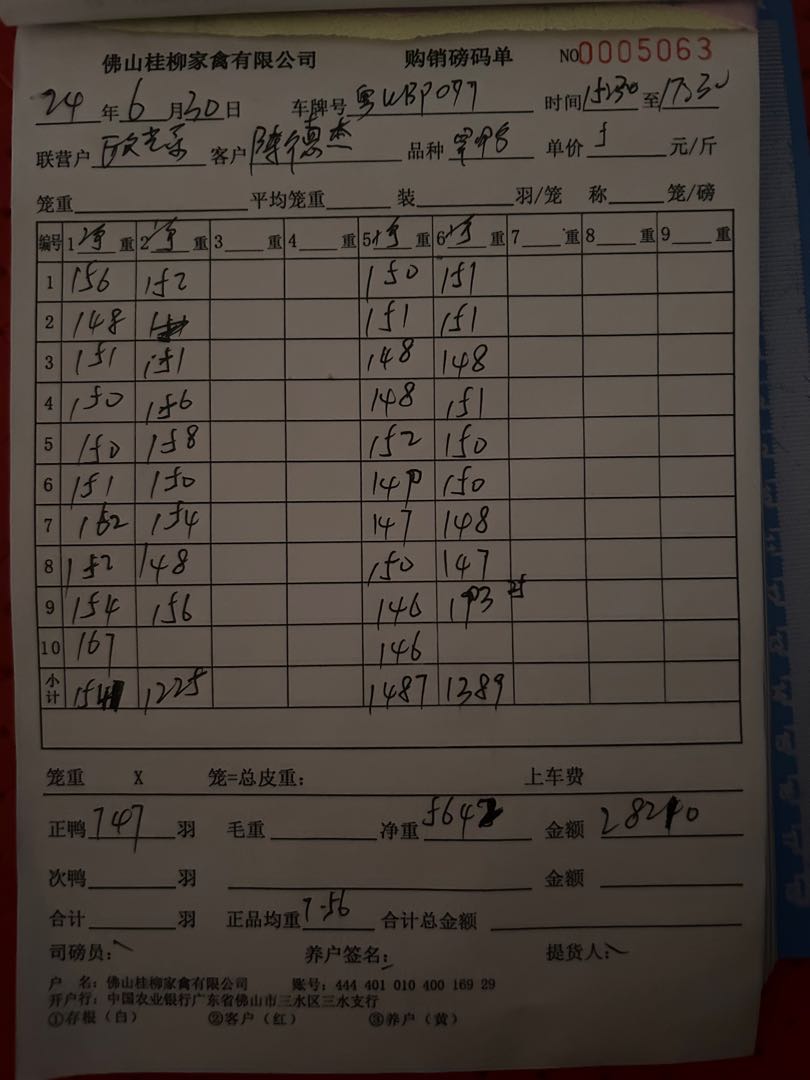 佛山桂柳家禽有限公司 购销磅码单 NO 0005063
24 年 6 月 30 日 车牌号 粤 时间 15:30 至 17:30
联营户 客户 陈德杰 品种 单价 5 元/斤
笼重 平均笼重 装 羽/笼 称 笼/磅
编号 1 净 重 2 净 重 3 重 4 重 5 净 重 6 净 重 7 重 8 重 9 重
1 156 152 150 151
2 148 151 151
3 151 151 148 148
4 150 156 148 151
5 150 158 152 150
6 151 150 150
7 152 154 147 148
8 152 148 150 147
9 154 156 146 193 25
10 167 146
小计 1541 1225 1487 1389
笼重 X 笼=总皮重: 上车费
正鸭 747 羽 毛重 净重 5642 金额 28210
次鸭 羽 金额
合计 羽 正品均重 7.56 合计总金额
司磅员: 养户签名: 提货人:
户 名: 佛山桂柳家禽有限公司 账号: 444 401 010 400 169 29
开户行: 中国农业银行广东省佛山市三水区三水支行
①存根(白) ②客户(红) ③养户(黄)